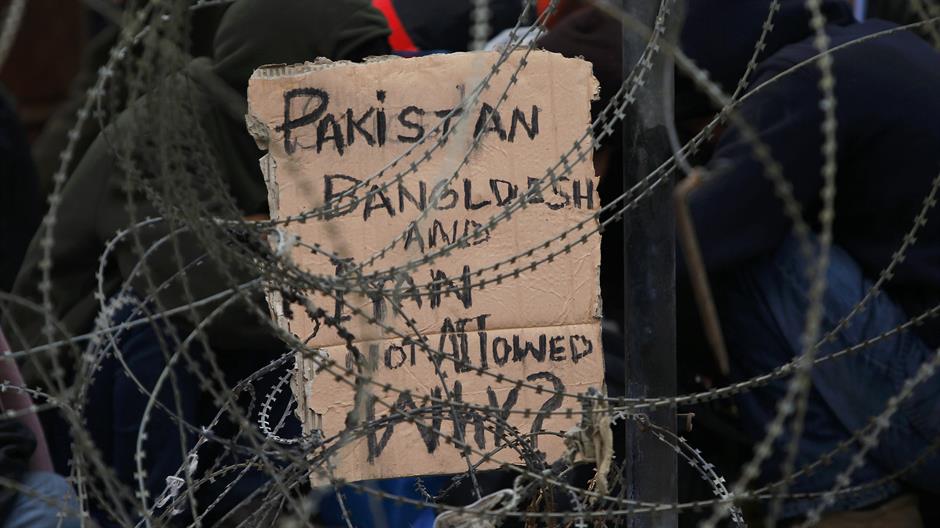 PAKiSTAN
BANGLDESH
AND
iYAN
NOT AllOWED
WHY?